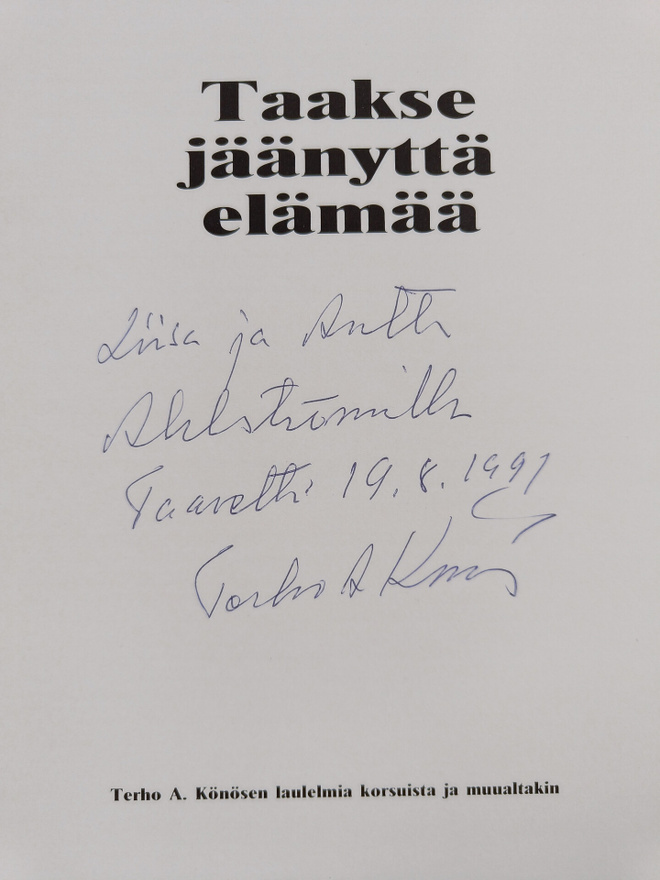 Taakse
jäänyttä
elämää
Liisa ja Antti
Ahlströmille
Taavetti 19.8.1991
Terho A Könönen
Terho A. Könösen laulelmia korsuista ja muualtakin